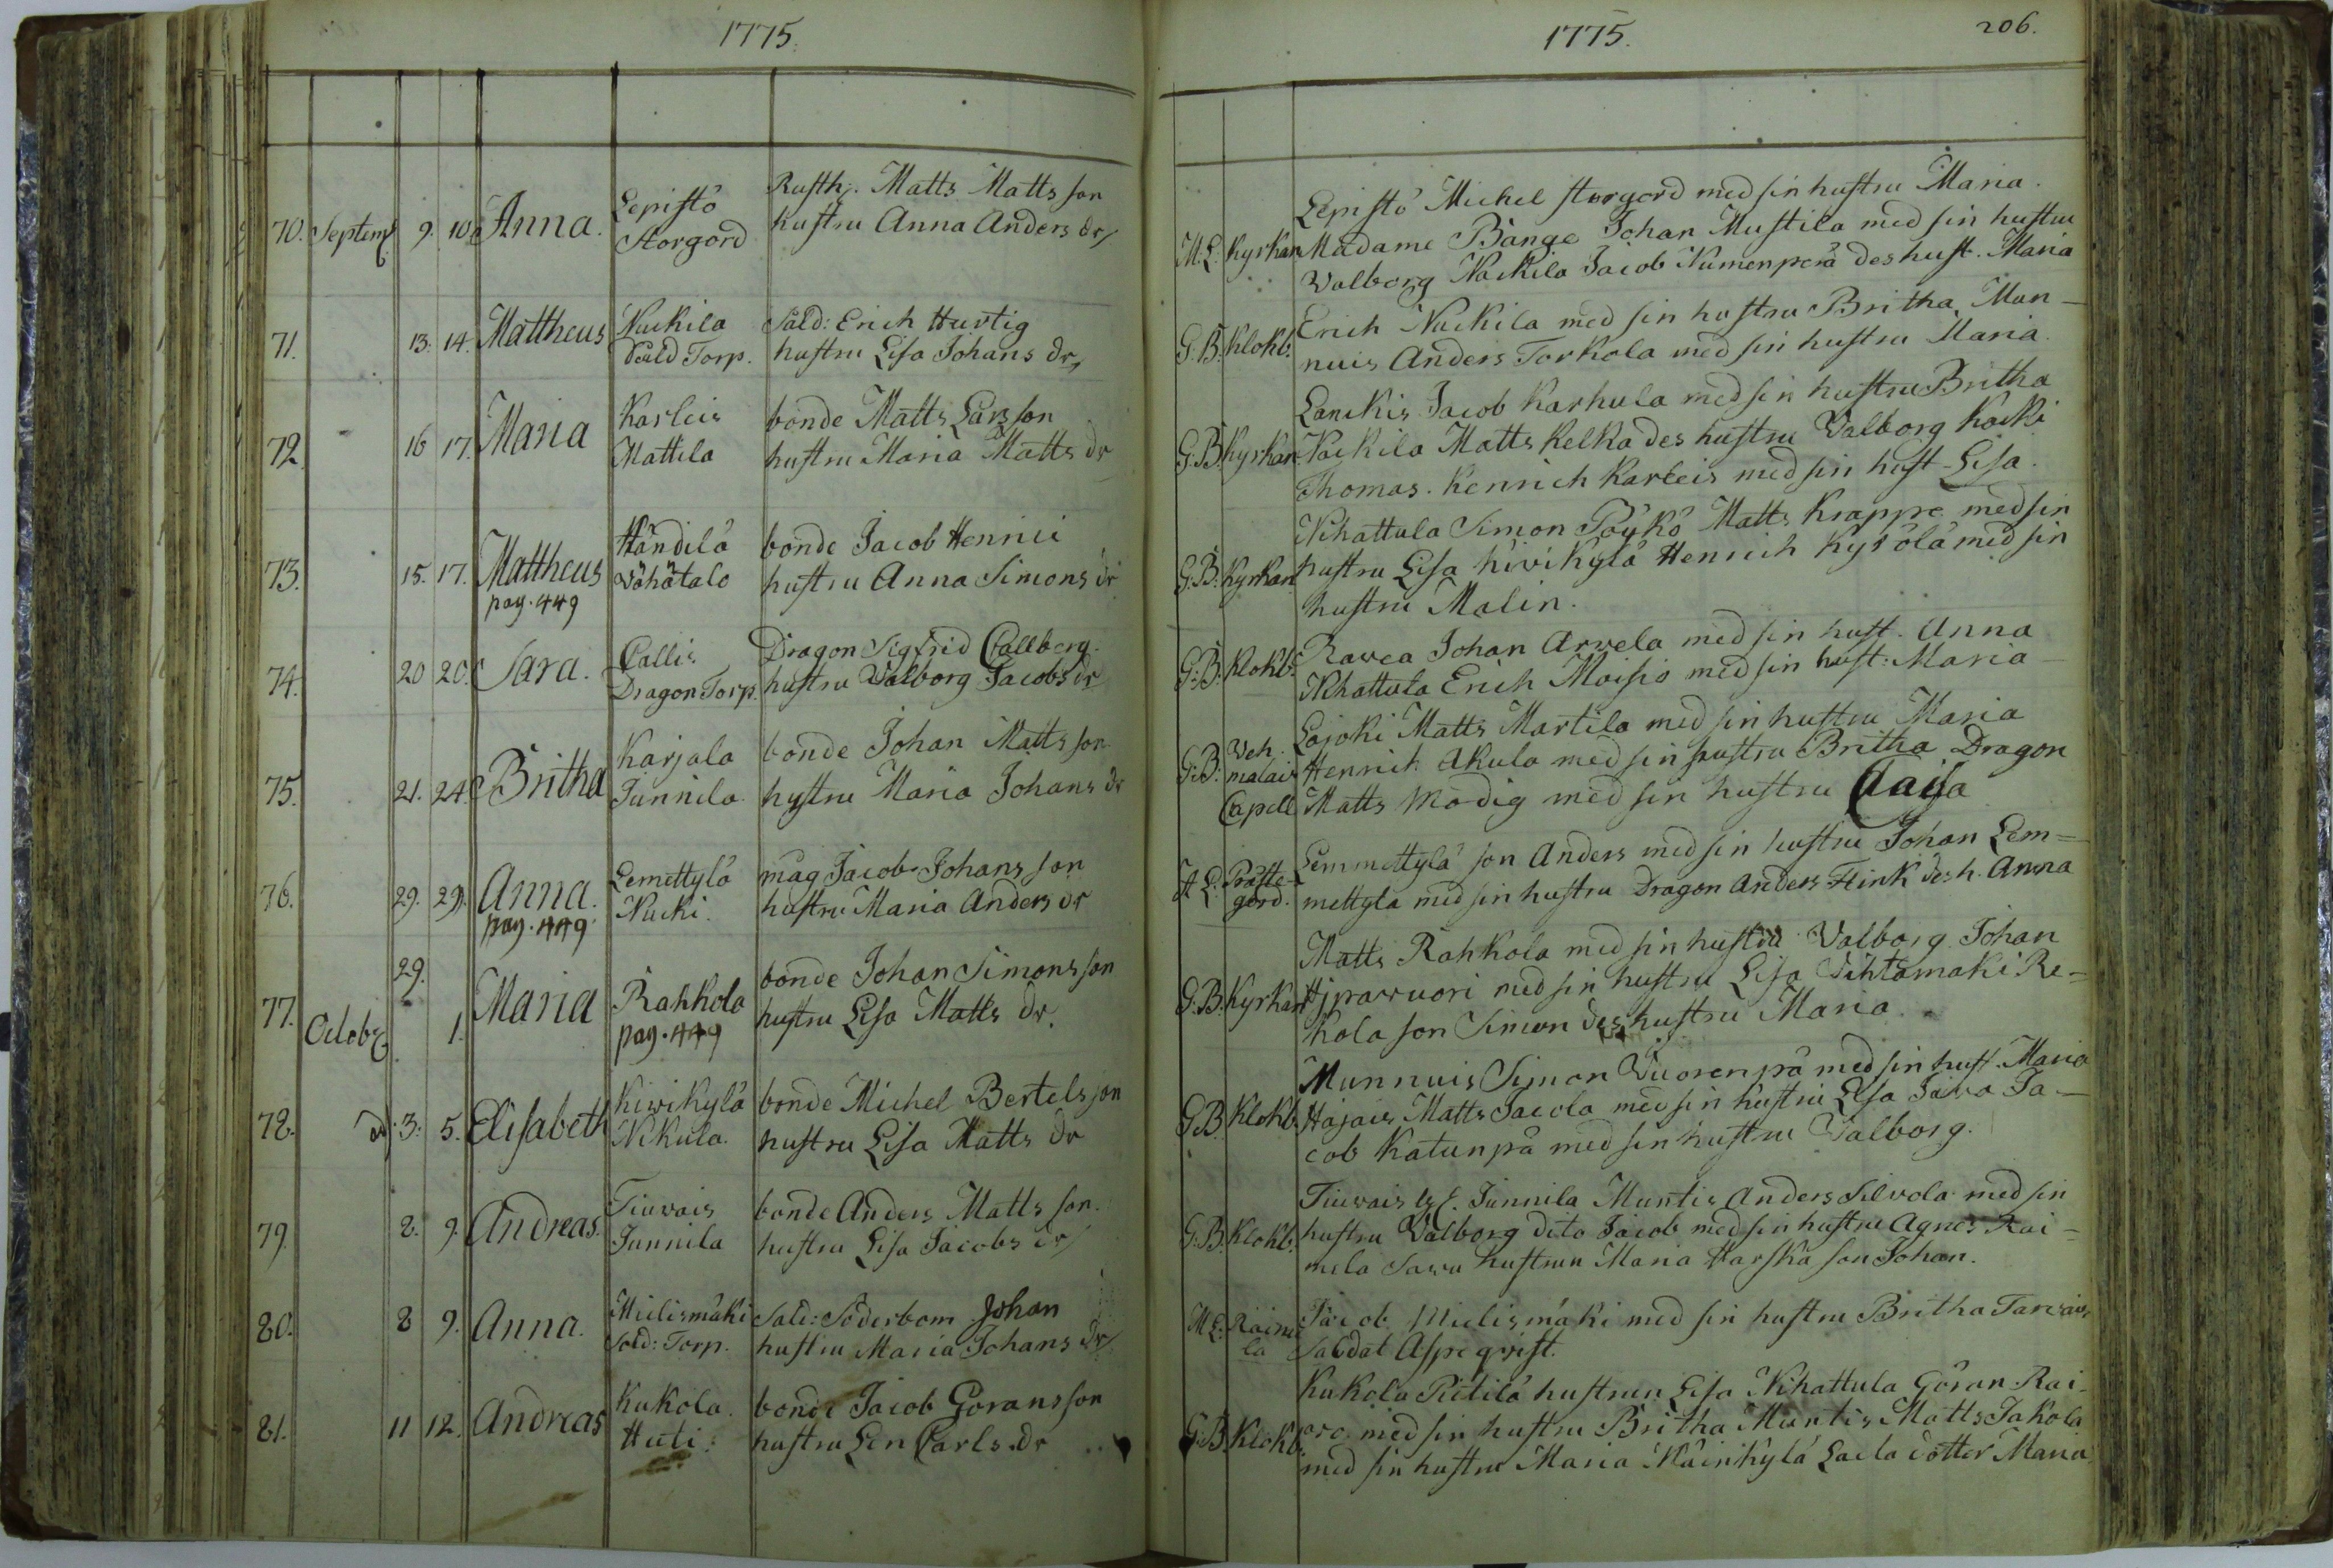 1775.
70. Septemb 9. 10 Anna. Lepistö Rusth: Matts Matts son
Storgord hustru Anna Anders dr
71. 13. 14. Mattheus Nuckila Sald: Erich Hurtig
Sald Torp. hustru Lisa Johans dr
72. 16 17. Maria Karleis bonde Matts Larsson
Mattila hustru Maria Matts dr
73. 15. 17. Mattheus Händilä bonde Jacob Hennici
pag. 449 Vähätalo hustru Anna Simons dr
74. 20 20. Sara. Callis Dragon Sigfrid Callberg.
Dragon Torp. hustru Valborg Jacobs dr
75. 21. 24. Britha Karjala bonde Johan Matts son
Junnila. hustru Maria Johans dr
76. 29. 29. Anna. Lemettylä måg Jacob Johans son
pag. 449. Nucki. hustru Maria Anders dr
77. 29. Maria Rahkola bonde Johan Simons son
Octob 1. pag. 449 hustru Lisa Matts dr.
78. 3. 5. Elisabeth Kiwikylä bonde Michel Bertels son
Nikula. hustru Lisa Matts dr
79. 8. 9. Andreas. Tiuvais bonde Anders Matts son.
Junnila hustru Lisa Jacobs dr
80. 8 9. Anna. Mielismäki Sald: Söderbom Johan
Sold: Torp. hustru Maria Johans dr
81. 11 12. Andreas Kukola. bonde Jacob Göransson
Huti. hustru Len Carls dr
1775. 206.
Lepistö Michel storgord med sin hustru Maria.
M.L. Kyrkan Madame Bånge Johan Mustila med sin hustru
Valborg Nackila Jacob Numenperä des hust. Maria
Erich Nuckila med sin hustru Britha Mun-
G.B. Klokb. nuis Anders Torkola med sin hustru Maria.
Lanckis Jacob Karhula med sin hustru Britha
G.B. Kyrkan. Nackila Matts Kelka des hustru Valborg Kacki
Thomas. Henrich Karleis med sin hust Lisa.
Nihattula Simon Pöykö Matts Krappe med sin
G.B. Kyrkan. hustru Lisa Kivikylä Henrich Kyrölä med sin
hustru Malin.
Ravea Johan Arvela med sin hust. Anna
G.B. Klokb. Nihattula Erich Moisio med sin hust: Maria
Lajoki Matts Martila med sin hustru Maria
G.B. Veh malais Henrich Akula med sin hustru Britha Dragon
Capell Matts Modig med sin hustru Caisa
Lemmettylä son Anders med sin hustru Johan Lem=
A L: Präste gord. mettyla med sin hustru Dragon Anders Flink des h. Anna
Matts Rahkola med sin hustru Valborg Johan
G.B. Kyrkan Hjpavuori med sin hustru Lisa Vihtämäki Re=
kola son Simon des hustru Maria.
Munnuis Simon Vuorenpä med sin hust. Maria
G.B. Klokb. Hajais Matts Jacola med sin hustru Lisa Sava Ja-
cob Katunpä med sin hustru Valborg.
Tiuvais Junnila Muntis Anders Silvola med sin
G.B. Klokb. hustru Valborg dito Jacob med sin hustru Agnes Rai=
mela Savu hustrun Maria Harska son Johan.
M L: Raime la Jacob Mielismäki med sin hustru Britha Tarvais
Saldat Aspeqvist.
Kukola Pietilä hustrun Lisa Nihattula Göran Rai-
G.B. Klokb. vo med sin hustru Britha Muntis Matts Jakola
med sin hustru Maria Mäinikylä Laila dotter Maria